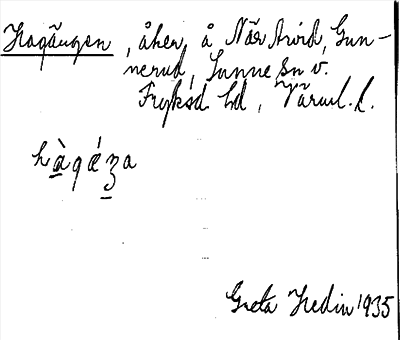 Hagängen, åker å När Arvid, Gun-
nerud, Sunne sn v.
Fryksd. hd, Värml. l.
hàgǽʒa
Greta Hedin 1935